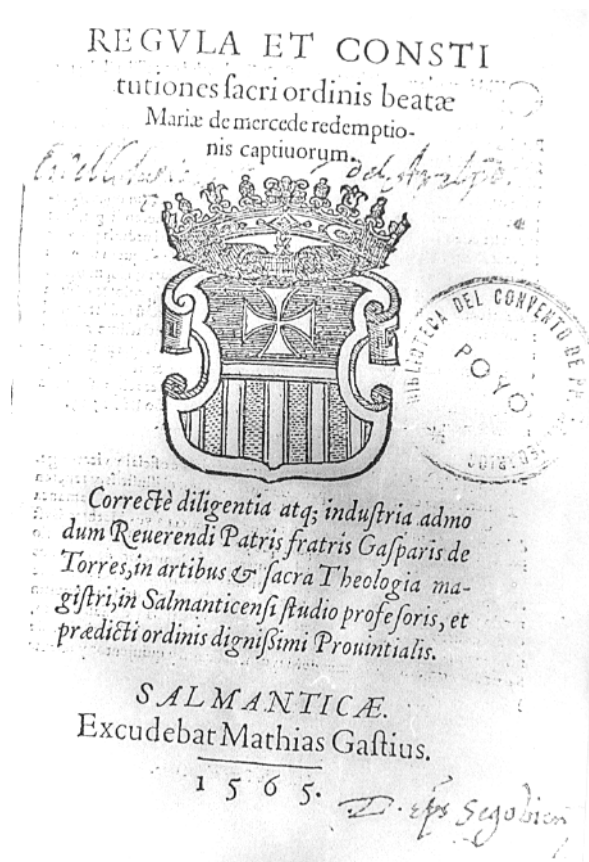 REGVLA ET CONSTI
tutiones ſacri ordinis beatæ
Mariæ de mercede redemptio-
nis captiuorum.
BIBLIOTECA DEL CONVENTO DE
POYO
Correctè diligentia atq; induſtria admo
dum Reuerendi Patris fratris Gaſparis de
Torres, in artibus & ſacra Theologia ma-
giſtri, in Salmanticenſi ſtudio profeſoris, et
prædicti ordinis digniſsimi Prouintialis.
SALMANTICÆ.
Excudebat Mathias Gaſtius.
1565.